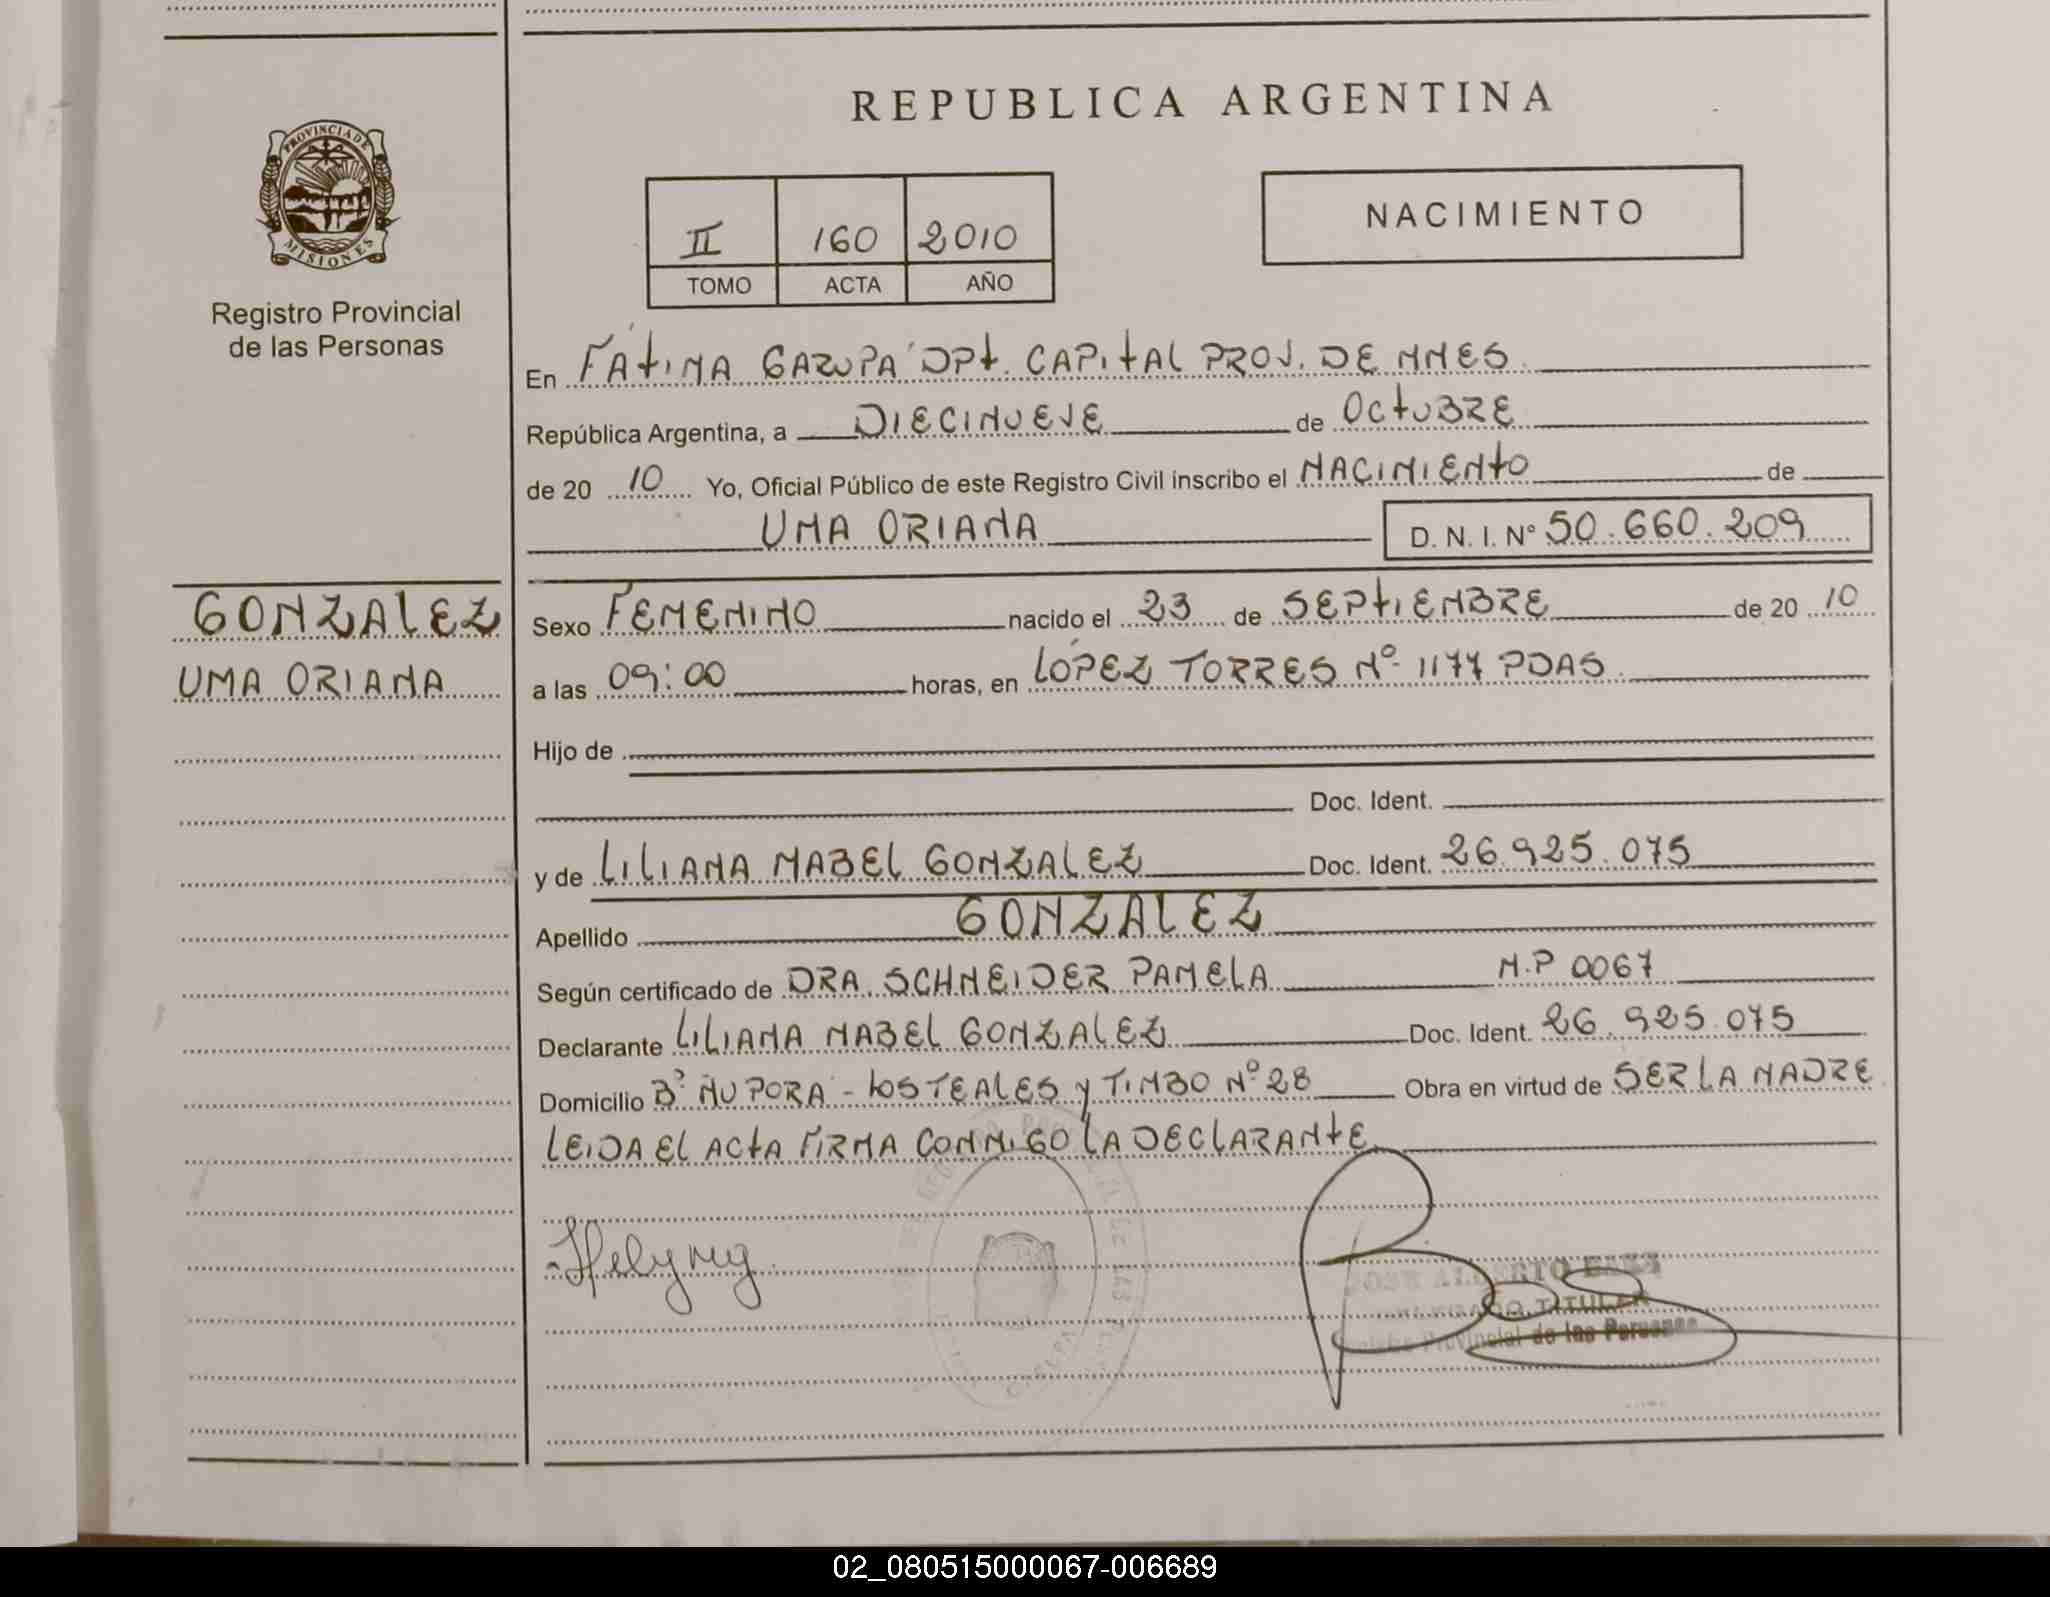 REPUBLICA ARGENTINA
PROVINCIA DE
MISIONES
Registro Provincial
de las Personas
II 160 2010
TOMO ACTA AÑO
NACIMIENTO
En FATIMA GARUPA DPT. CAPITAL PROV. DE MNES
República Argentina, a DIECINUEVE de OCTUBRE
de 20 10 Yo, Oficial Público de este Registro Civil inscribo el NACIMIENTO de
UMA ORIANA D. N. I. Nº 50.660.209
GONZALEZ
UMA ORIANA
Sexo FEMENINO nacido el 23 de SEPTIEMBRE de 20 10
a las 09:00 horas, en LÓPEZ TORRES Nº 1177 PDAS
Hijo de
Doc. Ident.
y de LILIANA MABEL GONZALEZ Doc. Ident. 26.925.075
Apellido GONZALEZ
Según certificado de DRA. SCHNEIDER PAMELA M.P 0067
Declarante LILIANA MABEL GONZALEZ Doc. Ident. 26.925.075
Domicilio Bº ÑU PORA - LOS TEALES y TIMBO Nº 28 Obra en virtud de SER LA MADRE
LEIDA EL ACTA FIRMA CONMIGO LA DECLARANTE
JOSE ALBERTO BAEZ
TITULAR
Provincial de las Personas
02_080515000067-006689